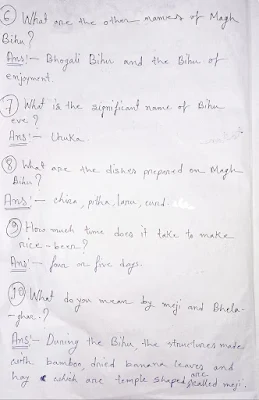 ⑥ What are the other names of Magh
Bihu?
Ans:- Bhogali Bihu and the Bihu of
enjoyment.
⑦ What is the significant name of Bihu
eve?
Ans:- Uruka.
⑧ What are the dishes prepared on Magh
Bihu?
Ans:- chira, pitha, laru, curd
⑨ How much time does it take to make
rice-beer?
Ans:- four or five days.
⑩ What do you mean by meji and Bhela-
ghar?
Ans:- During the Bihu, the structures made
with bamboo, dried banana leaves and
hay which are temple shaped are called meji.